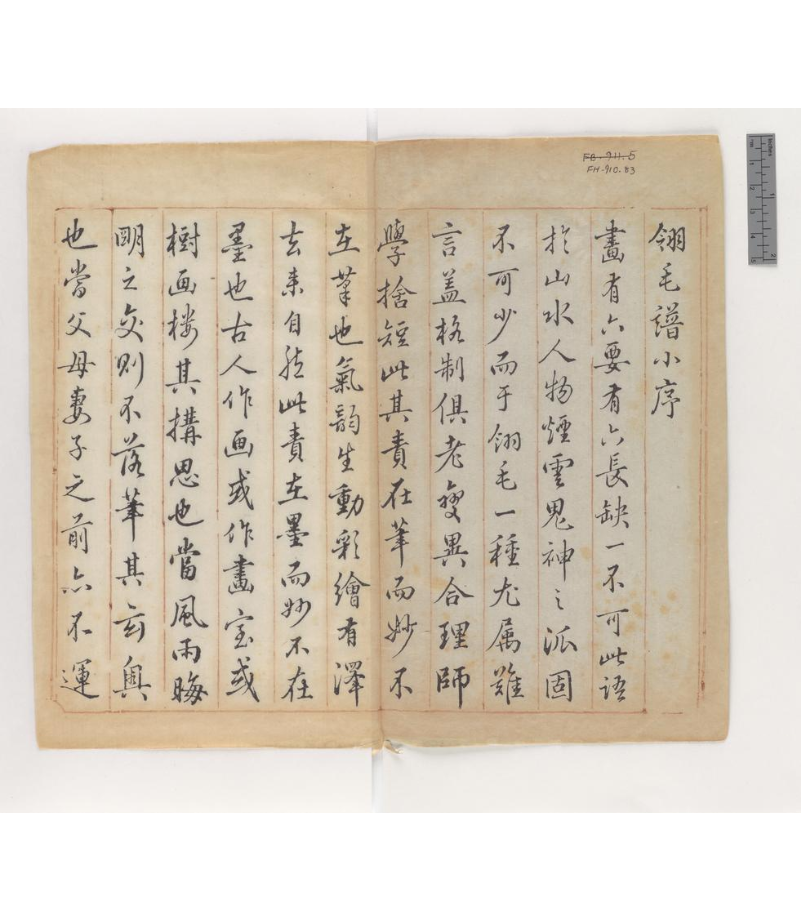 FB.911.5
FH.910.83
翎毛譜小序
畫有六要有六長缺一不可此語
於山水人物煙雲鬼神之派固
不可少而于翎毛一種尤属難
言盖格制俱老變異合理師
學捨短此其責在筆而妙不
在茟也氣韵生動彩繪有澤
去来自然此責在墨而妙不在
墨也古人作画或作畫室或
樹画楼其搆思也當風雨晦
明之交則不落筆其玄奥
也當父母妻子之前亦不運